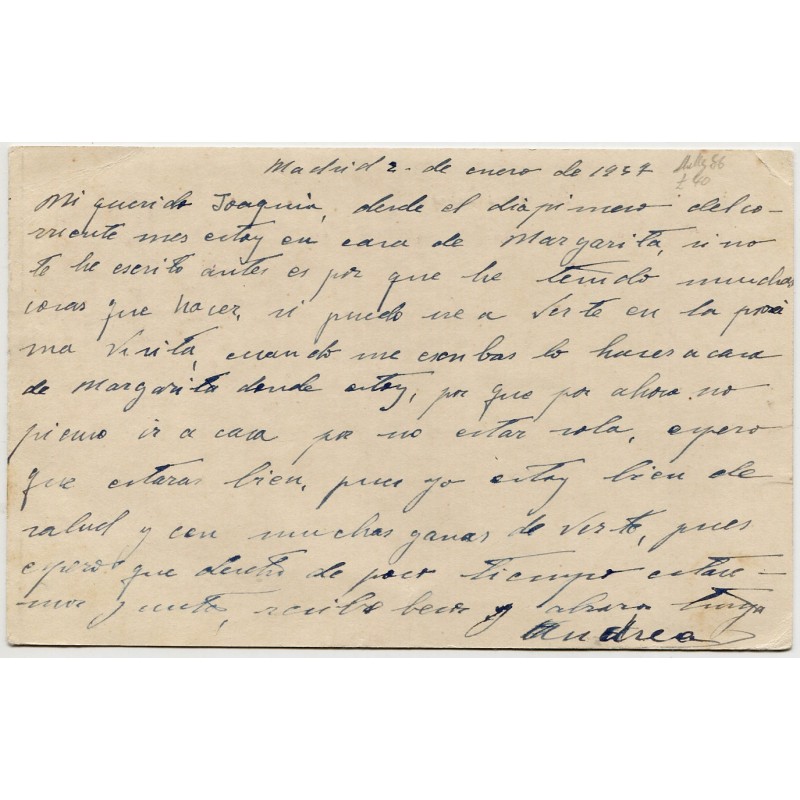 Madrid 2. de enero de 1937
Mi querido Joaquin, desde el dia pimero del co-
rriente mes estoy en casa de Margarita, si no
te he escrito antes es por que he tenido muchas
cosas que hacer, si puedo ire a Verte en la proxi
ma Visita, cuando me escribas lo haces a casa
de Margarita donde estoy, por que por ahora no
pienso ir a casa por no estar sola, espero
que estaras bien, pues yo estoy bien de
salud y con muchas ganas de Verte, pues
espero que dentro de poco tiempo estare-
mos juntos, recibe besos y abrazos tuya
Andrea
£ 40